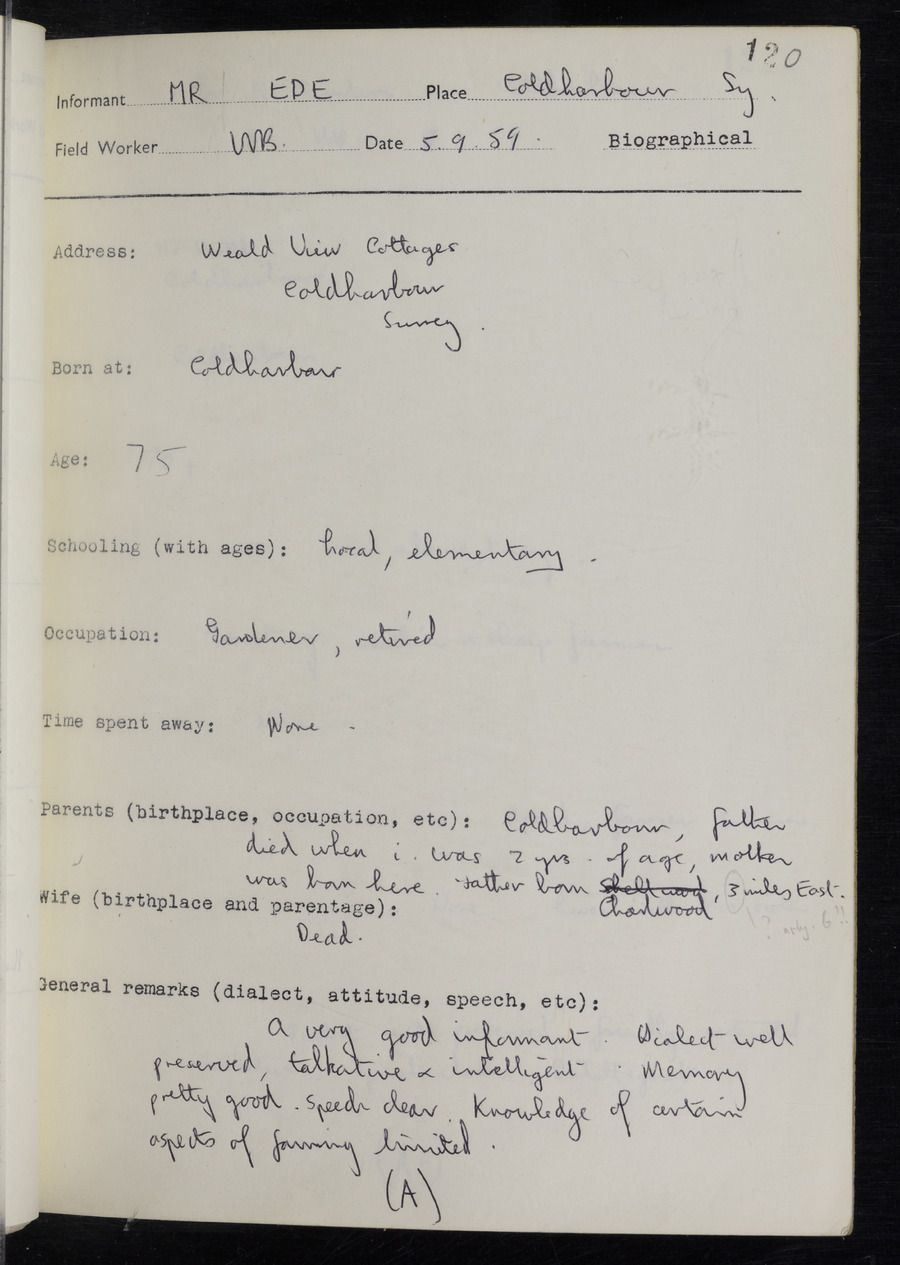 120
Informant MR EDE Place Coldharbour Sy.
Field Worker WB. Date 5.9.59. Biographical
Address: Weald View Cottages
Coldharbour
Surrey.
Born at: Coldharbour
Age: 75
Schooling (with ages): Local, elementary.
Occupation: Gardener, retired
Time spent away: None.
Parents (birthplace, occupation, etc): Coldharbour, father
died when i. was 2 yrs. of age, mother
was born here. Father born Shellwood, 3 miles East.
Charlwood
6!!
Wife (birthplace and parentage):
Dead.
General remarks (dialect, attitude, speech, etc):
A very good informant. Dialect well
preserved, talkative & intelligent. Memory
pretty good. Speech clear. Knowledge of certain
aspects of farming limited.
(A)